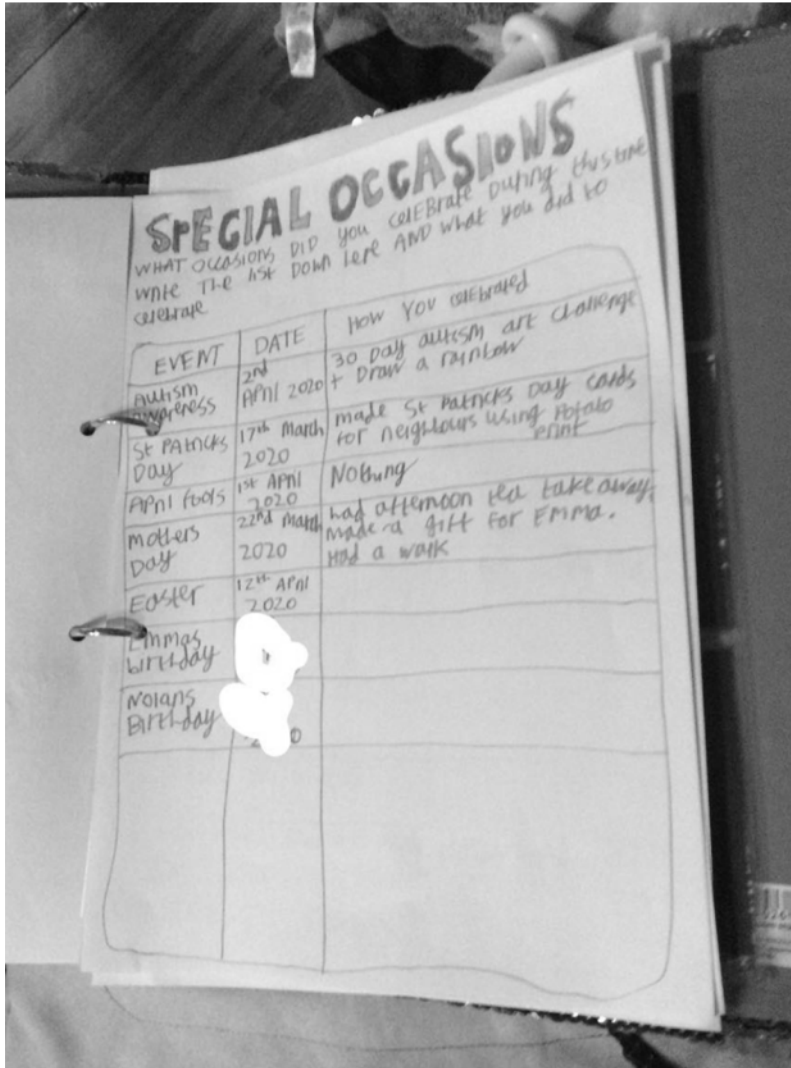 SPECIAL OCCASIONS
WHAT OCCASIONS DID YOU CELEBRATE DURING this time
write The list DOWN here AND what you did to
celebrate
EVENT DATE HOW YOU celebrated
Autism awareness 2nd April 2020 30 Day autism art challenge
+ Draw a rainbow
St Patricks Day 17th March 2020 made St Patricks Day cards
for neighbours using Potato
print
April fools 1st April 2020 Nothing
mothers Day 22nd March 2020 had afternoon tea takeaway.
made a gift for Emma.
Had a walk
Easter 12th April 2020
Emmas birthday
Nolans Birthday